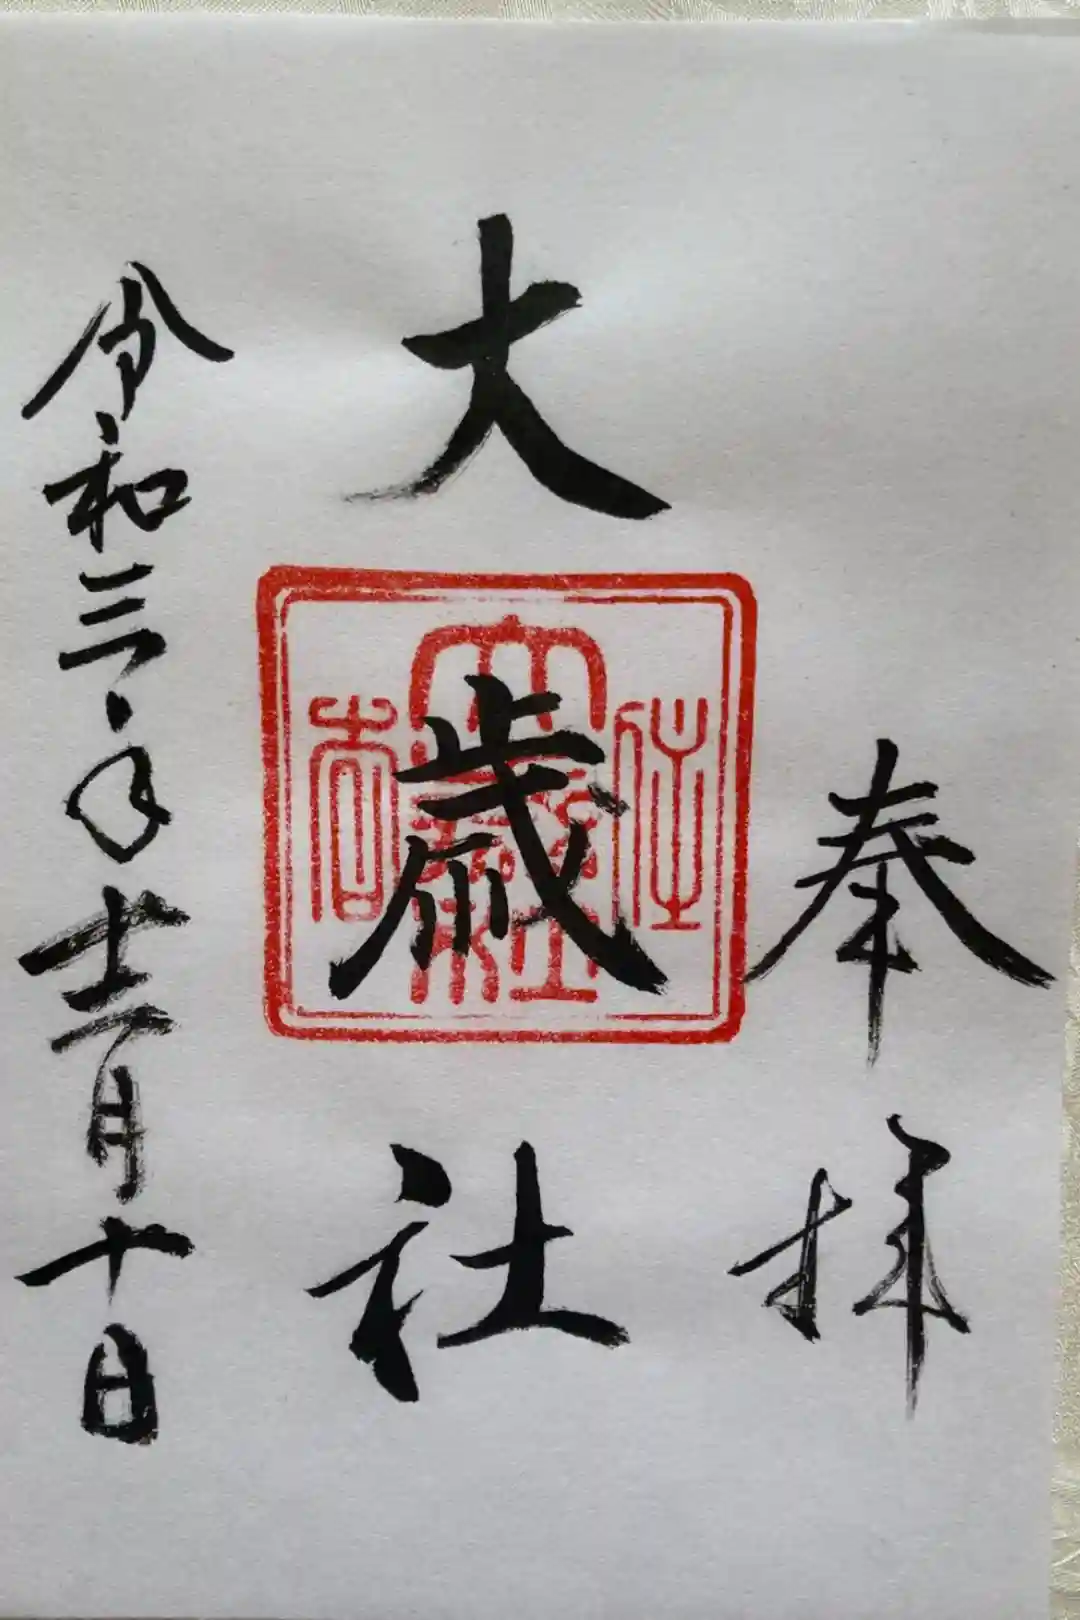 奉拝
大歳社
令和三年十二月十日
住吉
大歳社